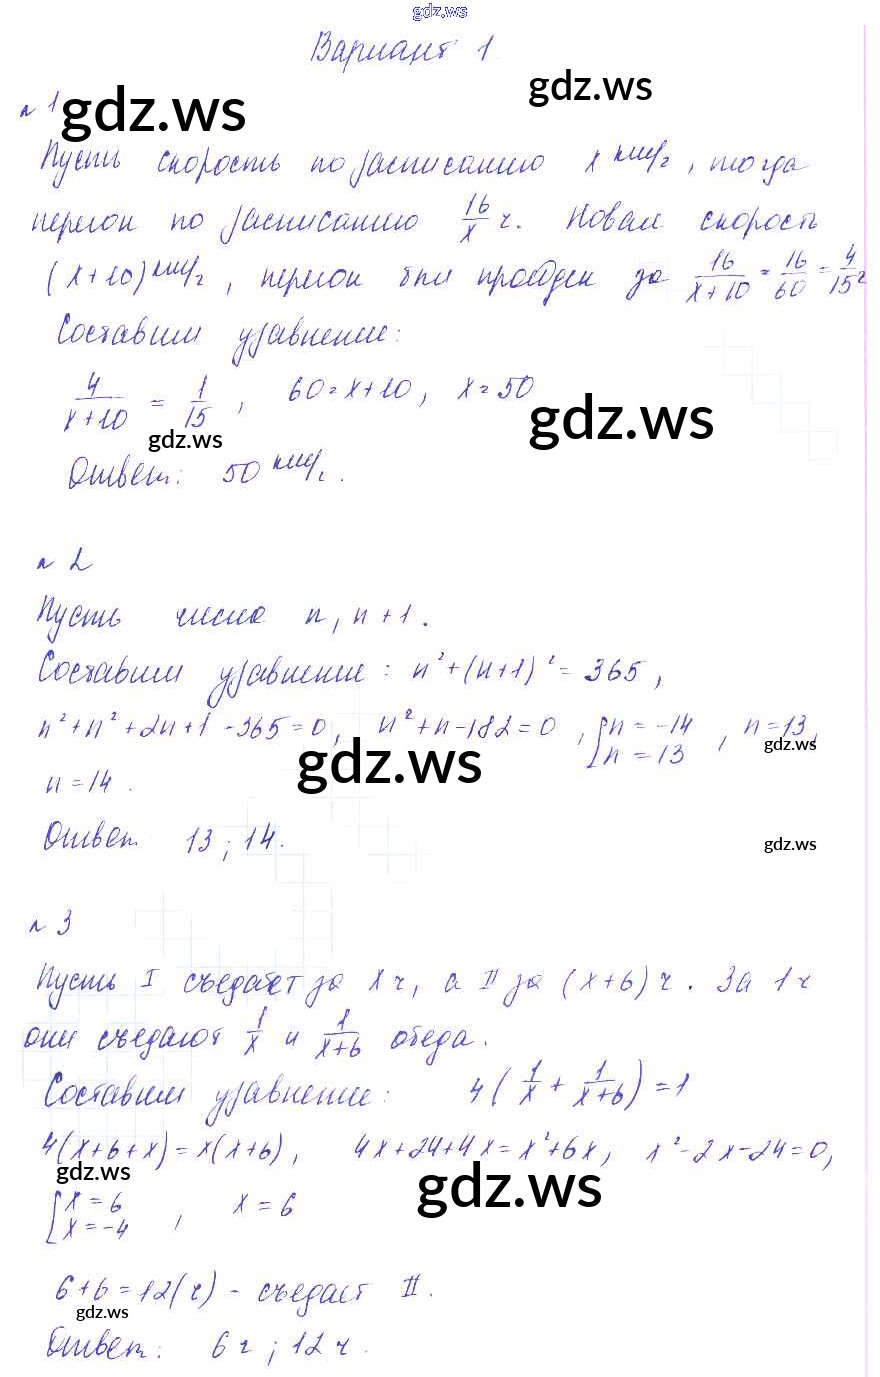 gdz.ws
Вариант 1
gdz.ws
n 1 gdz.ws
Пусть скорость по расписанию x км/г, тогда
перегон по расписанию 16/x ч. Новая скорость
(x+10) км/г, перегон был пройден за 16/(x+10) = 16/60 = 4/15 г
Составим уравнение:
4/(x+10) = 1/15, 60 = x+10, x = 50
gdz.ws gdz.ws
Ответ: 50 км/г.
n 2
Пусть числа n, n+1.
Составим уравнение: n²+(n+1)² = 365,
n²+n²+2n+1-365=0, n²+n-182=0, [n=-14 n=13, n=13,
gdz.ws gdz.ws
n=14.
Ответ 13; 14.
gdz.ws
n 3
Пусть I съедает за x ч, а II за (x+6) ч. За 1 ч
они съедают 1/x и 1/(x+6) обеда.
Составим уравнение: 4(1/x + 1/(x+6)) = 1
4(x+6+x) = x(x+6), 4x+24+4x = x²+6x, x²-2x-24=0,
gdz.ws gdz.ws
[x=6 x=-4, x=6
6+6=12(ч) - съедает II.
gdz.ws
Ответ: 6 ч; 12 ч.